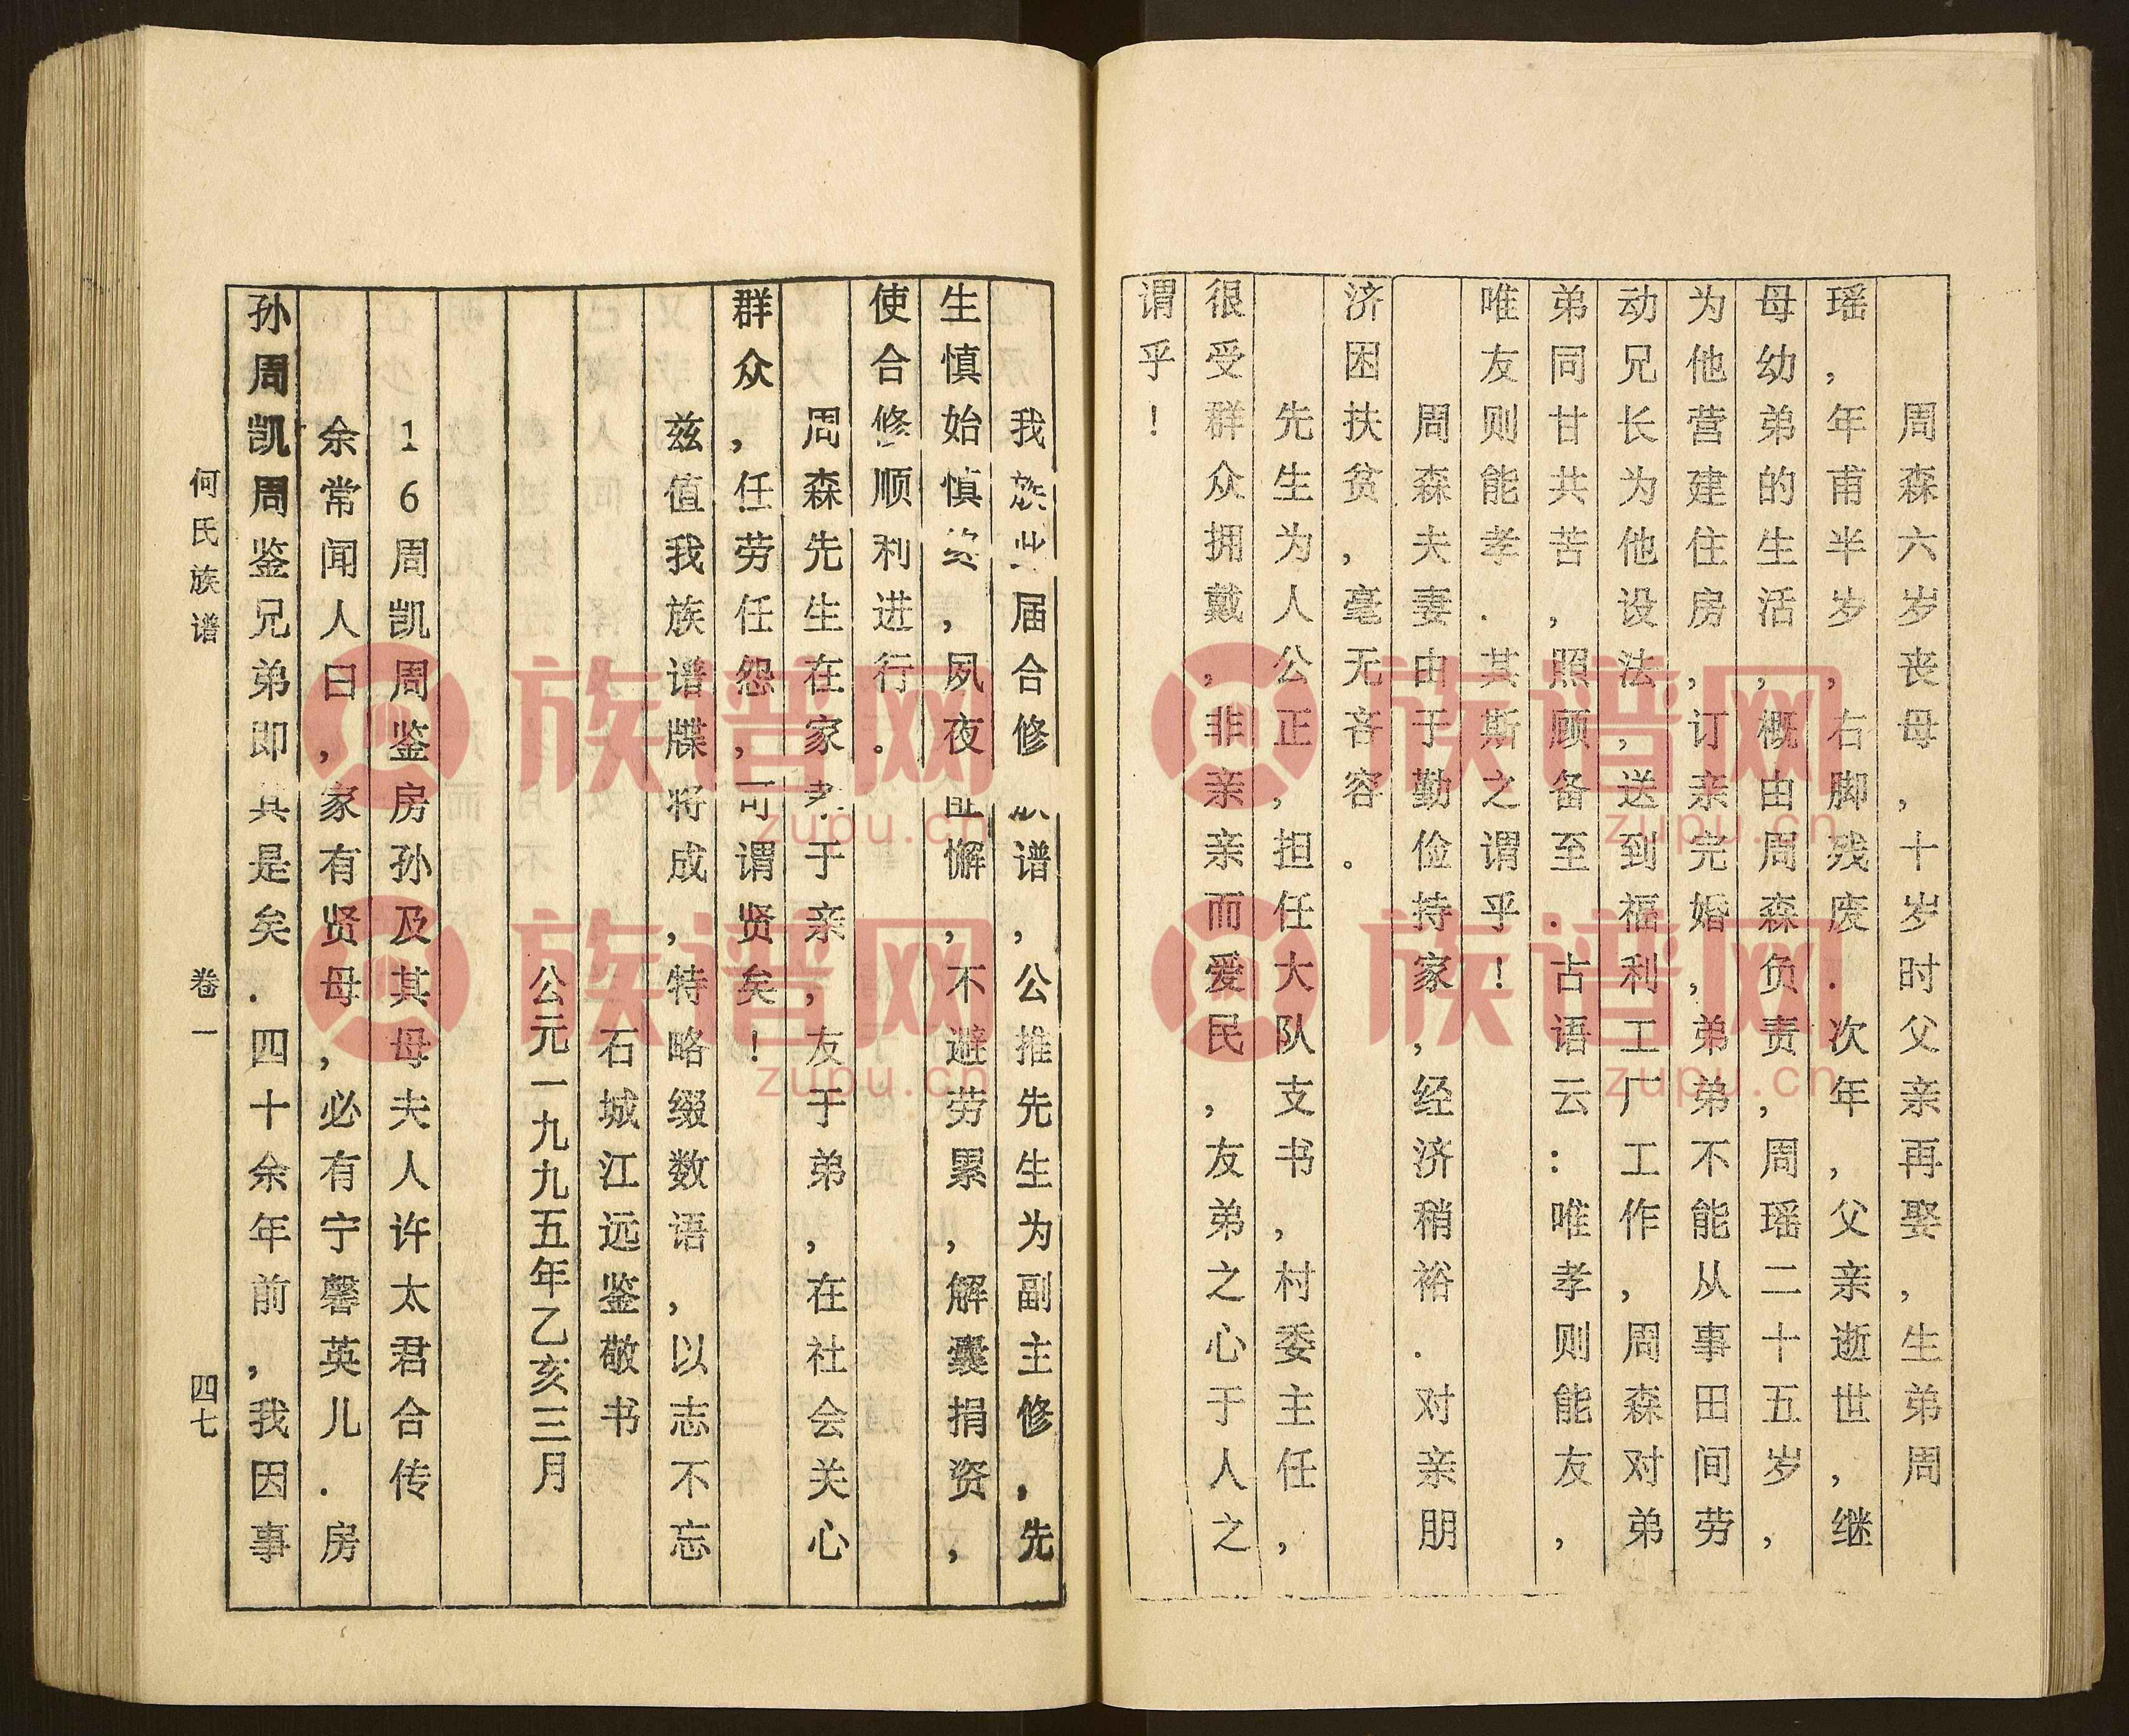 周森六岁丧母,十岁时父亲再娶,生弟周
瑶,年甫半岁,右脚残废.次年,父亲逝世,继
母幼弟的生活,概由周森负责,周瑶二十五岁,
为他营建住房,订亲完婚,弟弟不能从事田间劳
动兄长为他设法,送到福利工厂工作,周森对弟
弟同甘共苦,照顾备至.古语云:唯孝则能友,
唯友则能孝.其斯之谓乎!
周森夫妻由于勤俭持家,经济稍裕.对亲朋
济困扶贫,毫无吝容。
先生为人公正,担任大队支书,村委主任,
很受群众拥戴,非亲亲而爱民,友弟之心于人之
谓乎!
我族此届合修谱,公推先生为副主修,先
生慎始慎终,夙夜匪懈,不避劳累,解囊捐资,
使合修顺利进行。
周森先生在家孝于亲,友于弟,在社会关心
群众,任劳任怨,可谓贤矣!
兹值我族谱牒将成,特略缀数语,以志不忘
石城江远鉴敬书
公元一九九五年乙亥三月
16周凯周鉴房孙及其母夫人许太君合传
余常闻人曰,家有贤母,必有宁馨英儿.房
孙周凯周鉴兄弟即其是矣.四十余年前,我因事
何氏族谱 卷一 四七
族谱网
zupu.cn
族谱网
zupu.cn
族谱网
zupu.cn
族谱网
zupu.cn